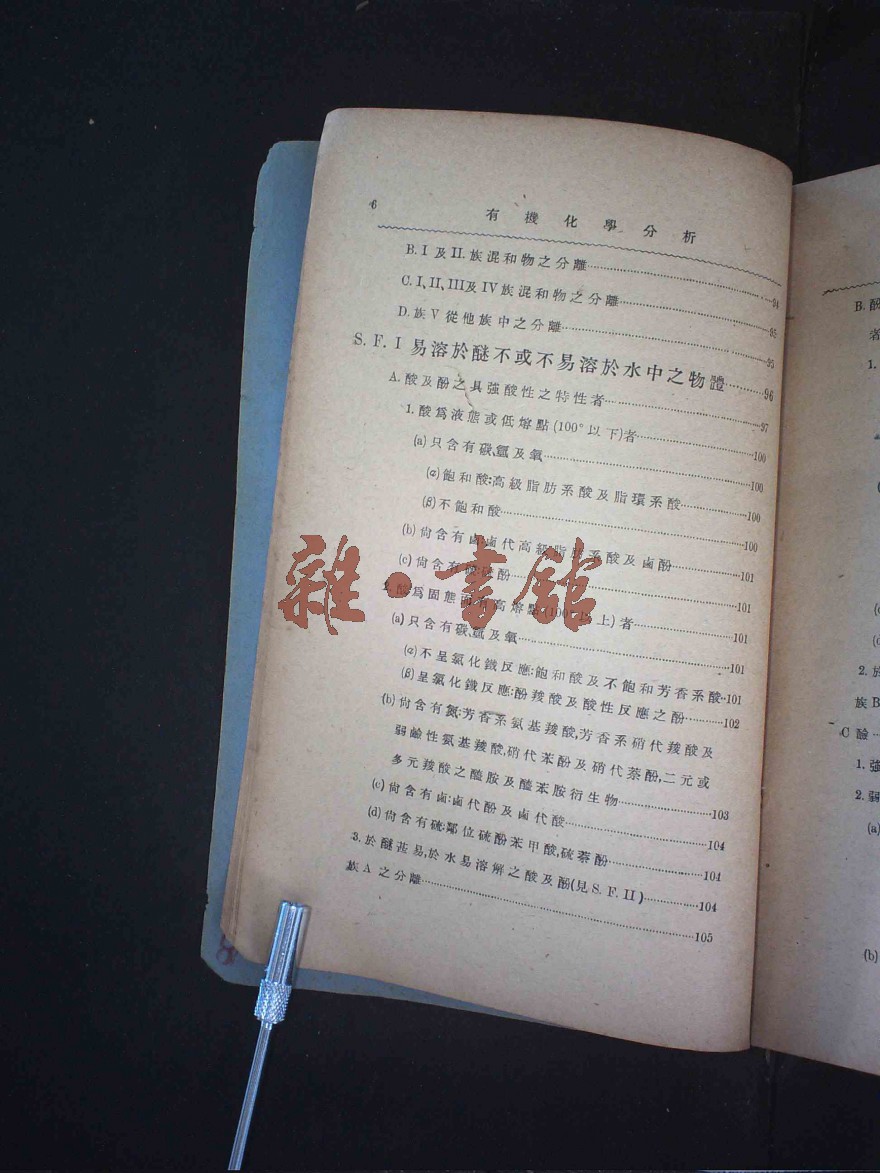 6 有機化學分析
B. I 及 II. 族混和物之分離……94
C. I, II, III及 IV 族混和物之分離……95
D. 族 V 從他族中之分離……95
S. F. I 易溶於醚不或不易溶於水中之物體……96
A. 酸及酚之具強酸性之特性者……97
1. 酸爲液態或低熔點(100°以下)者……100
(a) 只含有碳,氫及氧……100
(α) 飽和酸:高級脂肪系酸及脂環系酸……100
(β) 不飽和酸……100
(b) 尙含有鹵:鹵代高級脂肪系酸及鹵酚……101
(c) 尙含有硫:硫酚……101
2. 酸爲固態而有高熔點(100°以上)者……101
(a) 只含有碳,氫及氧……101
(α) 不呈氯化鐵反應:飽和酸及不飽和芳香系酸··101
(β) 呈氯化鐵反應:酚羧酸及酸性反應之酚……102
(b) 尙含有氮:芳香系氨基羧酸,芳香系硝代羧酸及
弱鹼性氨基羧酸,硝代苯酚及硝代萘酚,二元或
多元羧酸之醯胺及醯苯胺衍生物……103
(c) 尙含有鹵:鹵代酚及鹵代酸……104
(d) 尙含有硫:鄰位硫酚苯甲酸,硫萘酚……104
3. 於醚並易,於水易溶解之酸及酚(見 S. F. II)……104
族 A 之分離……105
雜·書館
B.
1.
2.
族B
C 醶
1. 強
2. 弱
(a)
(b)